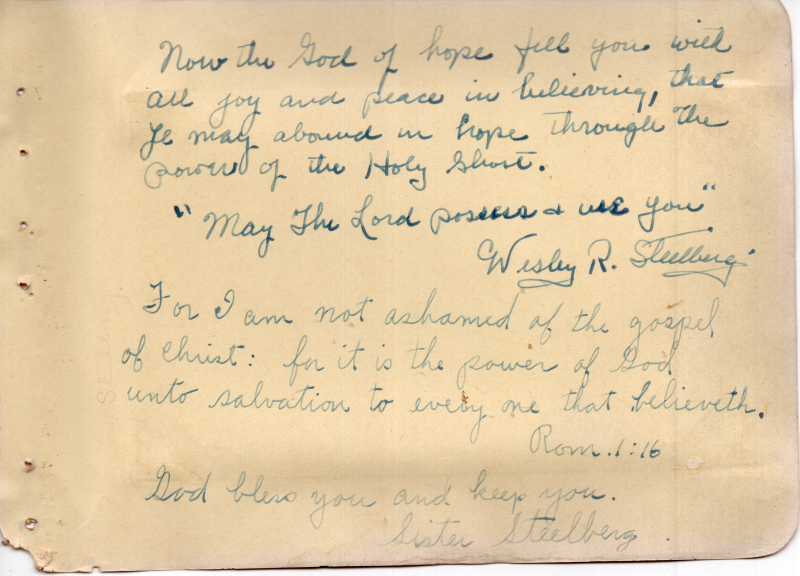 Now the God of hope fill you with
all joy and peace in believing, that
ye may abound in hope through the
power of the Holy Ghost.
"May The Lord possess & use you"
Wesley R. Steelberg
For I am not ashamed of the gospel
of Christ: for it is the power of God
unto salvation to every one that believeth.
Rom. 1:16
God bless you and keep you.
Sister Steelberg.